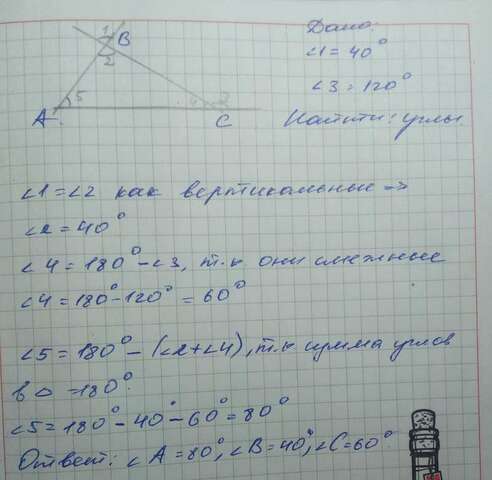 1
B
2
A
5
4
3
C
Дано:
∠1 = 40°
∠3 = 120°
Найти: углы
∠1 = ∠2 как вертикальные =>
∠2 = 40°
∠4 = 180° - ∠3, т.к они смежные
∠4 = 180° - 120° = 60°
∠5 = 180° - (∠2 + ∠4), т.к сумма углов
в △ = 180°.
∠5 = 180° - 40° - 60° = 80°
Ответ: ∠A = 80°, ∠B = 40°, ∠C = 60°.